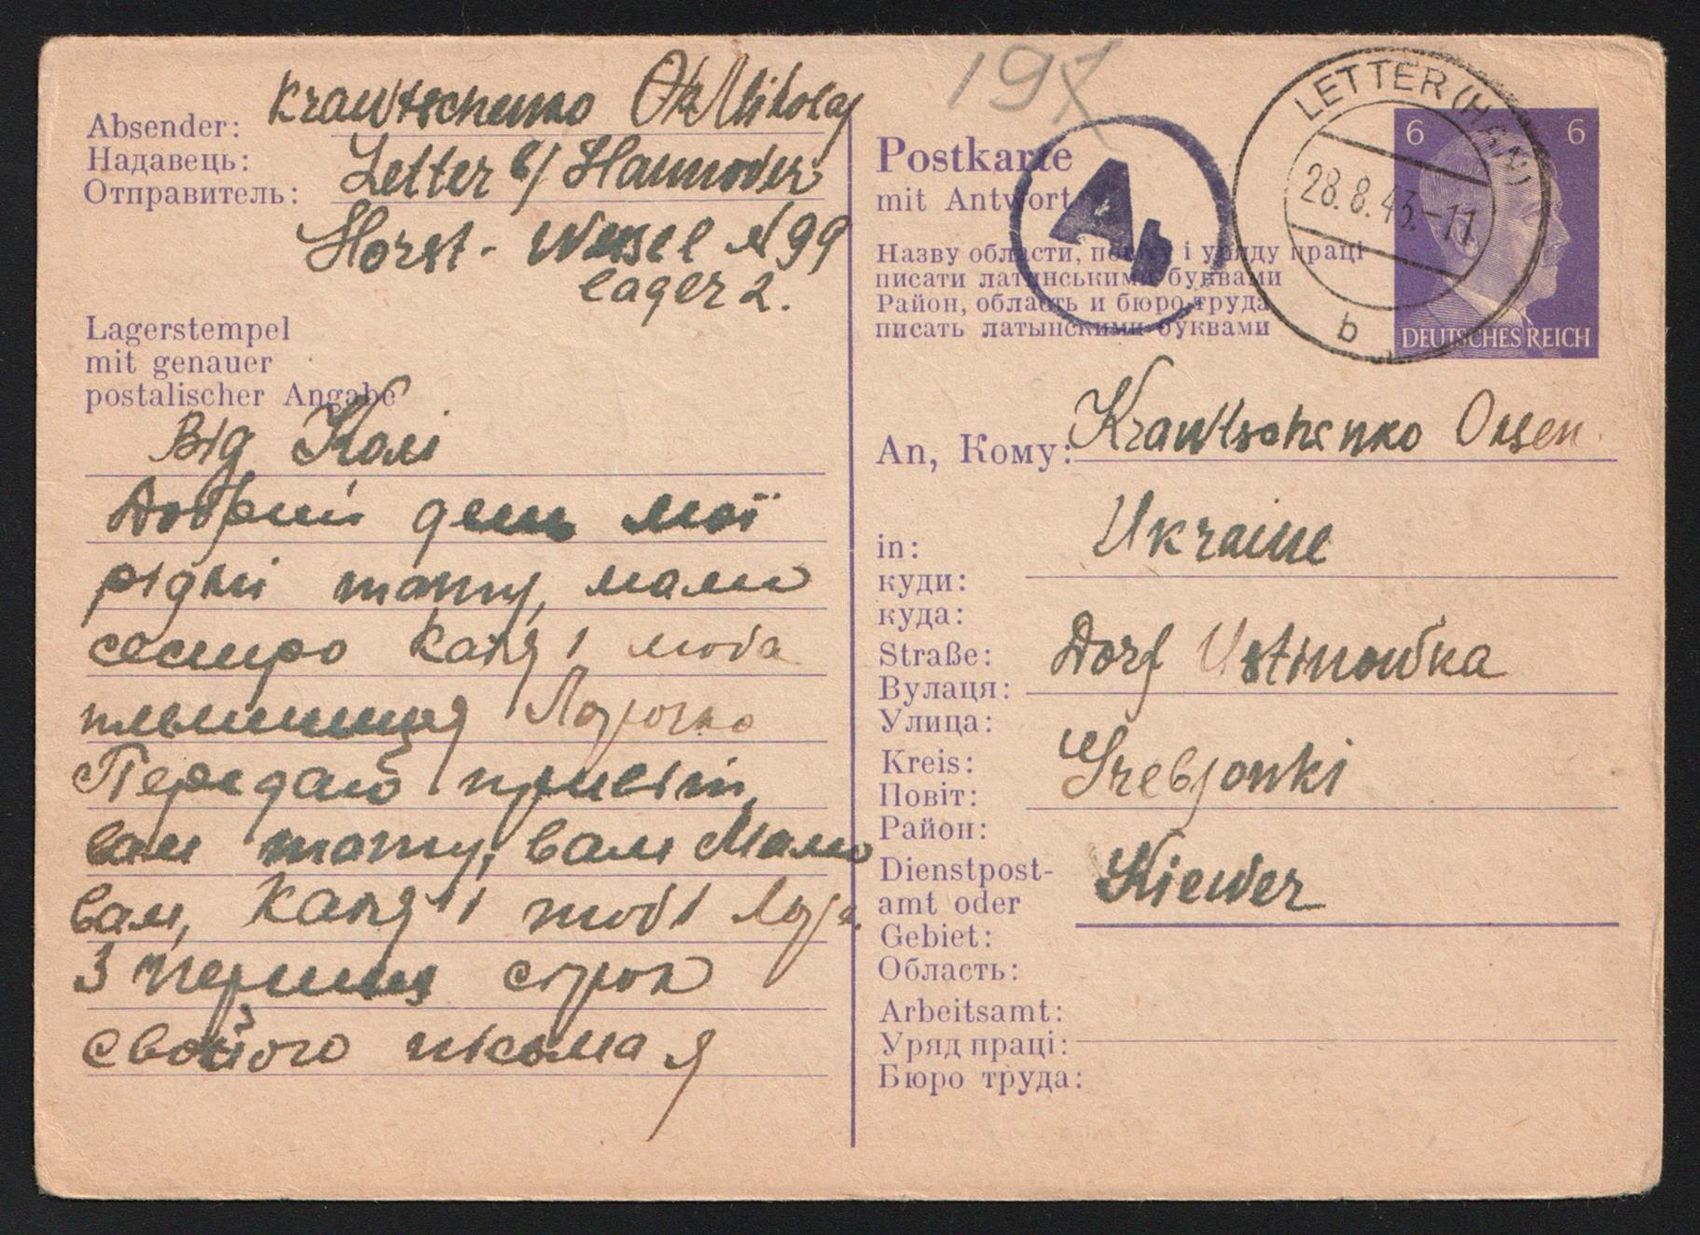 Absender: Krawtschenko Mikolay
Надавець:
Отправитель:
Letter b/ Hannover
Horst - Wessel N 99
lager 2.
Lagerstempel
mit genauer
postalischer Angabe
Від Колі
Добрий день мої
рідні тату, мамо
сестро Катя і люба
племінниця
Передаю привіт,
вам тату, вам Мамо
вам, Катя і тобі
З перших строк
свойого пісьма я
19
Postkarte
mit Antwort
Назву области, повіту і уряду праці
писати латынськими буквами
Район, область и бюро труда
писать латынскими буквами
A
LETTER (HAN)
28.8.43.-11
b
6 6
DEUTSCHES REICH
An, Кому: Krawtschenko
in: Ukraine
куди:
куда:
Straße: Dorf Ustinowka
Вулаця:
Улица:
Kreis: Grebjonki
Повіт:
Район:
Dienstpost-
amt oder Kiewer
Gebiet:
Область:
Arbeitsamt:
Уряд праці:
Бюро труда: